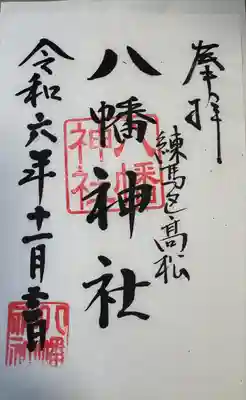 奉拝
練馬区高松
八幡神社
八幡
神社
令和六年十一月 日